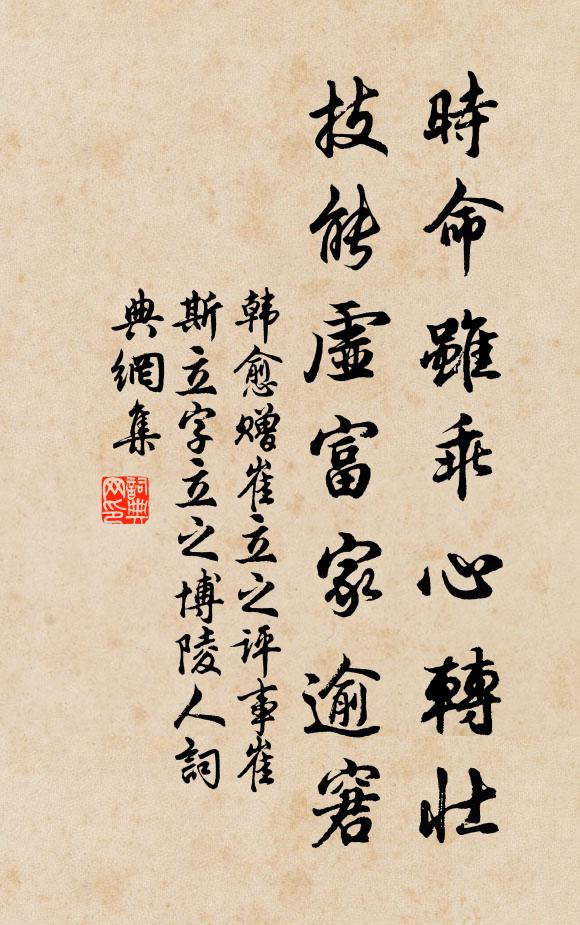 時命雖乖心轉壯
技能虛富家逾窘
韓愈贈崔立之評事崔
斯立字立之博陵人詞
典網集
詞典
网印